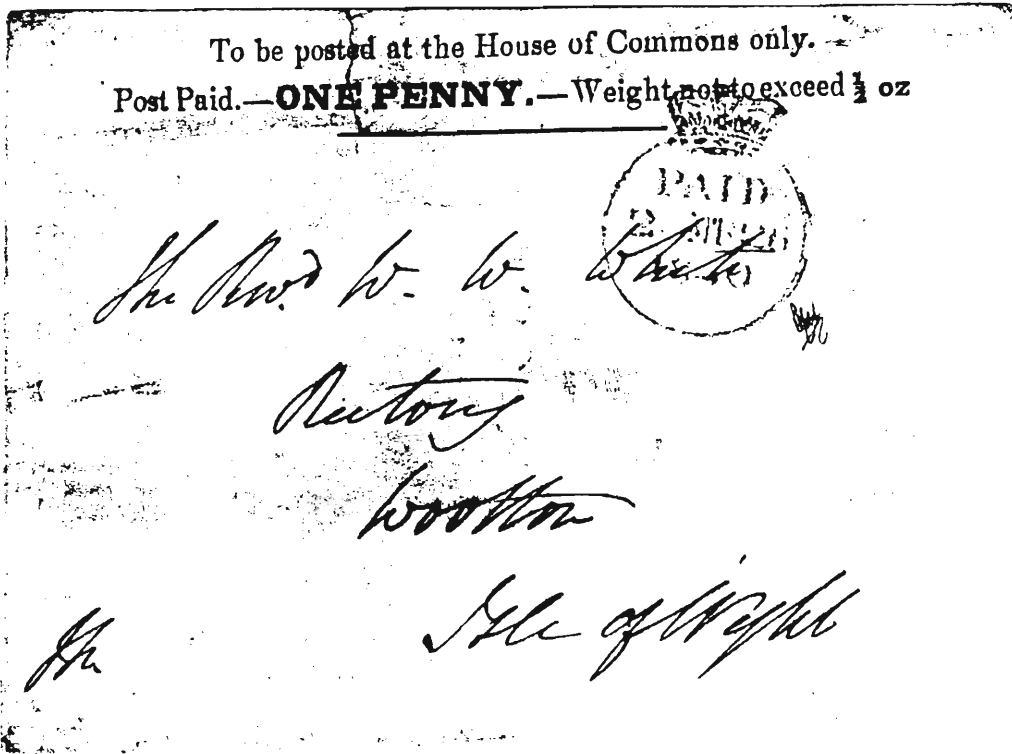 To be posted at the House of Commons only.
Post Paid.—ONE PENNY.—Weight not to exceed ½ oz
PAID
The Revd. W. W. White
Rectory
Wootton
Isle of Wight